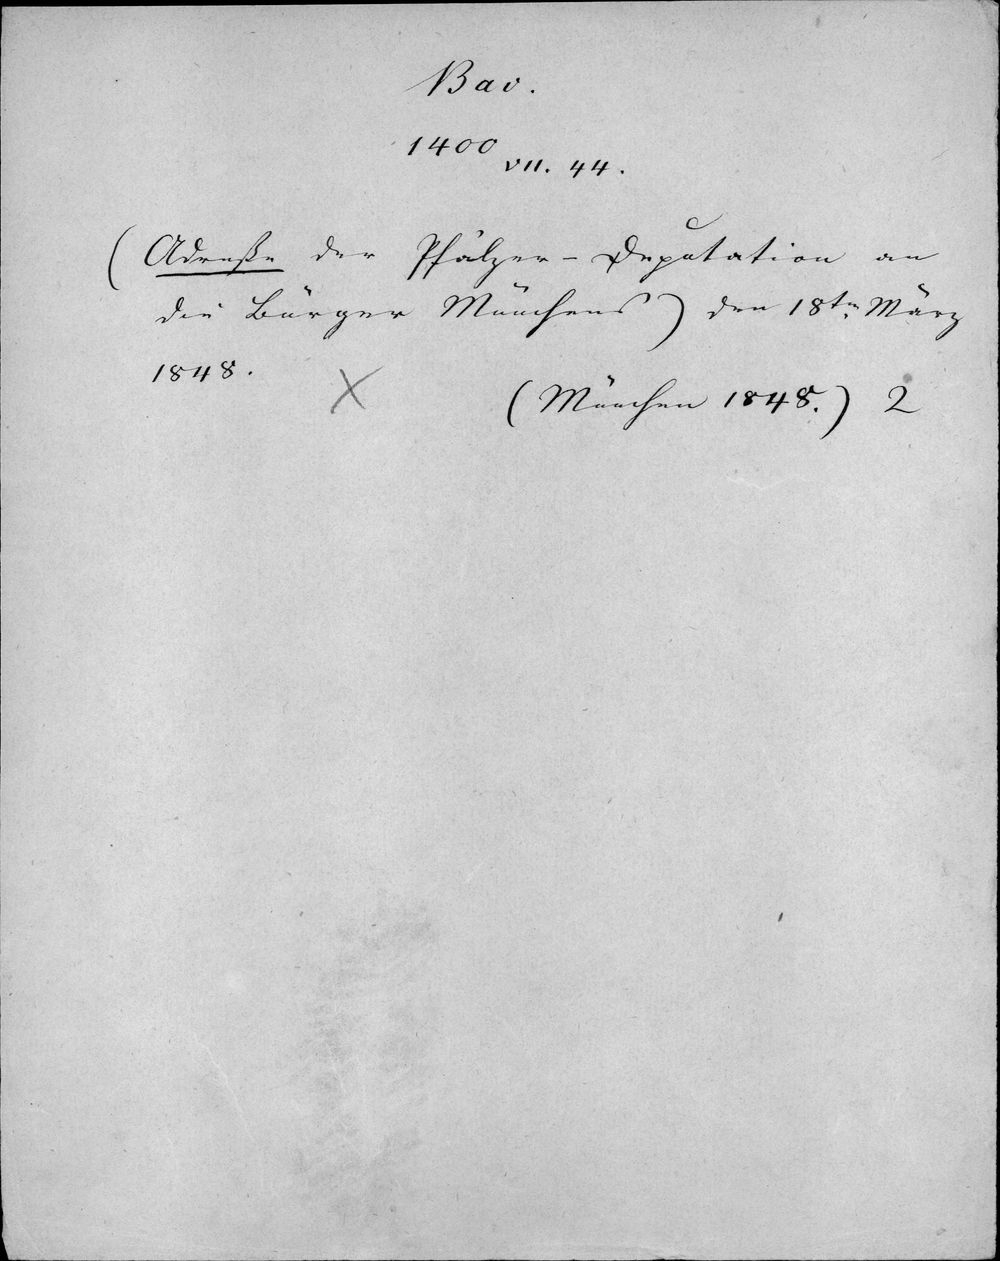 Bav.
1400
VII. 44.
(Adreße der Pfälzer-Deputation an
die Bürger Münchens) den 18ten März
1848.
X
(München 1848.) 2